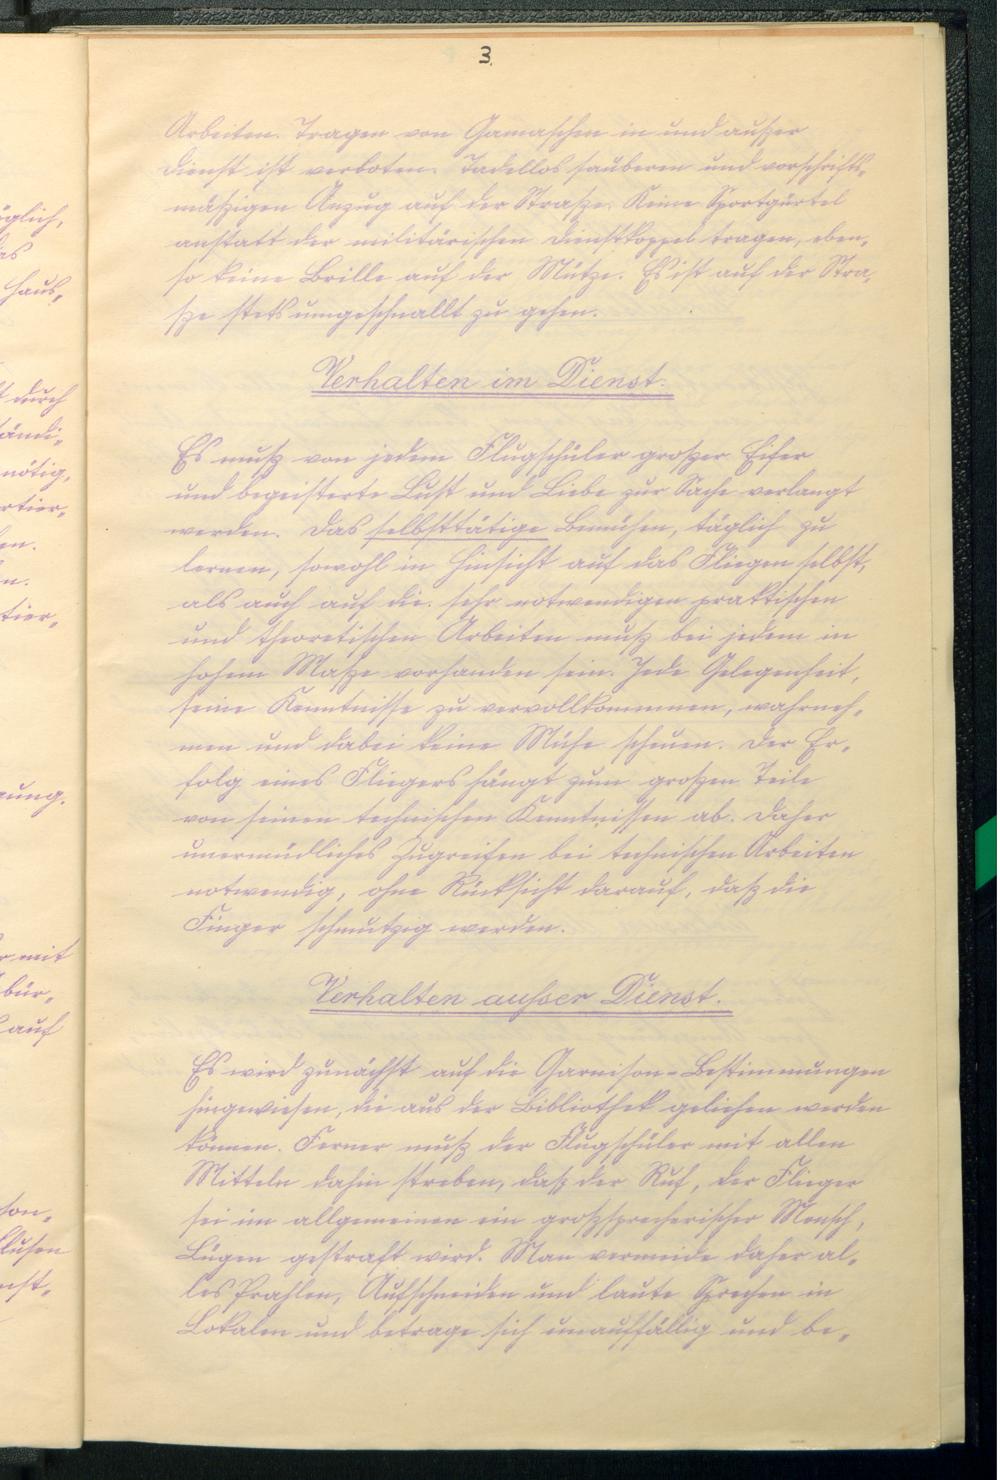 3.
Arbeiten. Tragen von Gamaschen in und außer
Dienst ist verboten. Tadellos sauberen und vorschrifts-
mäßigen Anzug auf der Straße. Keine Sportgürtel
anstatt der militärischen Dienstkoppel tragen, eben-
so keine Brille auf der Mütze. Es ist auf der Stra-
ße stets umgeschnallt zu gehen.
Verhalten im Dienst.
Es muß von jedem Flugschüler großer Eifer
und begeisterte Lust und Liebe zur Sache verlangt
werden. Das selbsttätige Bemühen, täglich zu
lernen, sowohl in Hinsicht auf das Fliegen selbst,
als auch auf die sehr notwendigen praktischen
und theoretischen Arbeiten muß bei jedem in
hohem Maße vorhanden sein. Jede Gelegenheit,
seine Kenntnisse zu vervollkommnen, wahrneh-
men und dabei keine Mühe scheuen. Der Er-
folg eines Fliegers hängt zum großen Teile
von seinen technischen Kenntnissen ab. Daher
unermüdliches Zugreifen bei technischen Arbeiten
notwendig, ohne Rücksicht darauf, daß die
Finger schmutzig werden.
Verhalten ausser Dienst.
Es wird zunächst auf die Garnison-Bestimmungen
hingewiesen, die aus der Bibliothek geliehen werden
können. Ferner muß der Flugschüler mit allen
Mitteln dahin streben, daß der Ruf, der Flieger
sei im allgemeinen ein großsprecherischer Mensch,
Lügen gestraft wird. Man vermeide daher al-
les Prahlen, Aufschneiden und laute Sprechen in
Lokalen und betrage sich unauffällig und be-